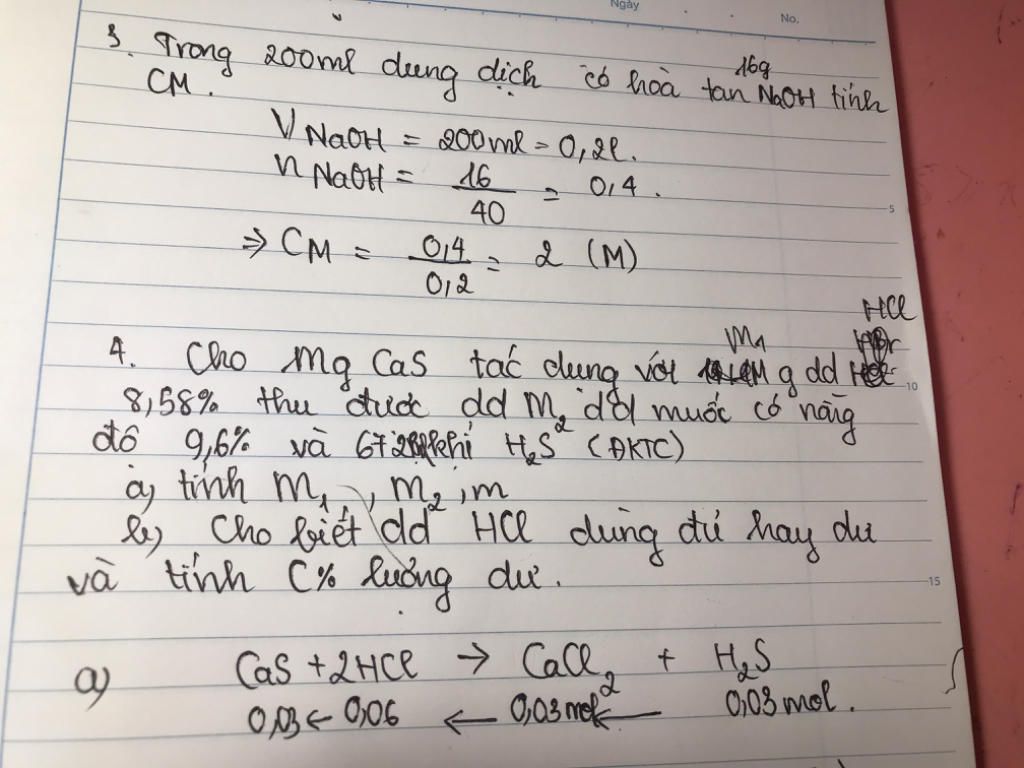 Ngày
No.
3. Trong 200ml dung dịch có hoà tan 16g NaOH tính
CM.
V NaOH = 200ml = 0,2l.
n NaOH = 16/40 = 0,4.
⇒ CM = 0,4/0,2 = 2 (M)
4. Cho mg CaS tác dụng với m₁ g dd HCl
8,58% thu được dd m₂ dd muối có nồng
độ 9,6% và 672 khí H₂S (ĐKTC)
a) tính m₁, m₂, m
b) Cho biết dd HCl dùng đủ hay dư
và tính C% lượng dư.
a) CaS + 2HCl → CaCl₂ + H₂S
0,03 ← 0,06 ← 0,03mol ← 0,03mol.
5
10
15